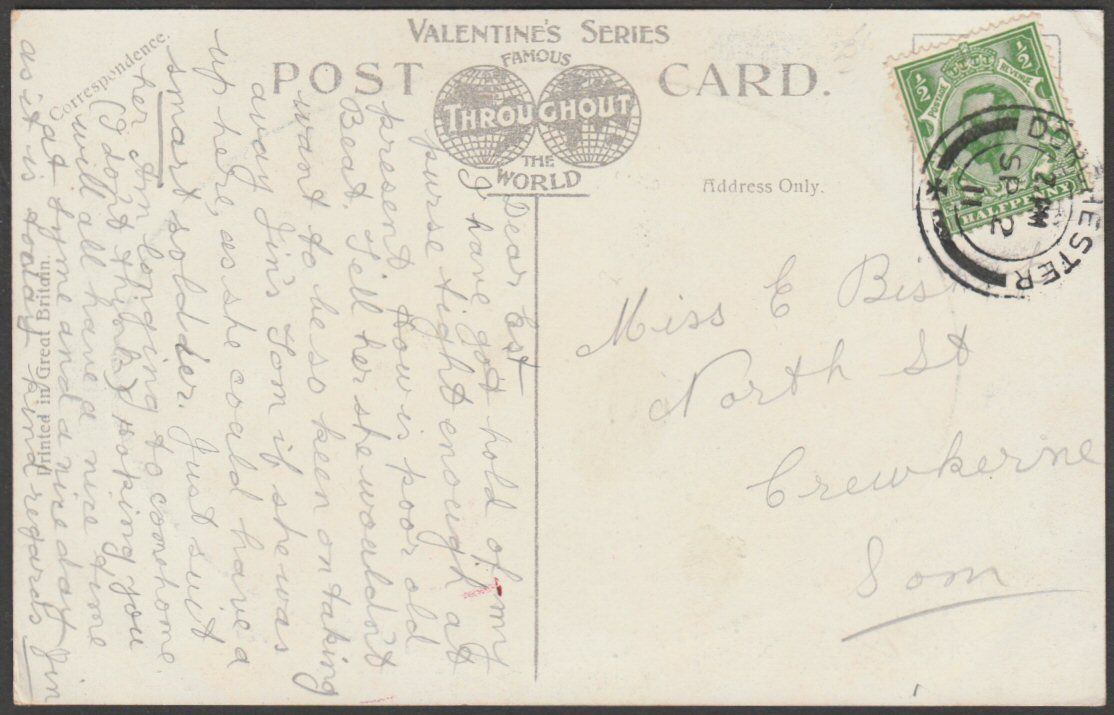 VALENTINE'S SERIES
FAMOUS
POST CARD.
THROUGHOUT
THE
WORLD
Correspondence.
Address Only.
Printed in Great Britain.
½ ½
POSTAGE REVENUE
HALFPENNY
DORCHESTER
2 PM
SP 2
11
Miss E Bis
North St
Crewkerne
Som
Dear Est
I have got hold of my
purse tight enough at
present. How is poor old
Beat. Tell her she wouldn't
want to be so keen on taking
away Jin's Tom if she was
up here, as she could have a
smart solder. Just suit
her. Am longing to come home
(I don't think) Hoping you
will all have a nice time
at Lyme and a nice day
as it is today. Kind regards Jin